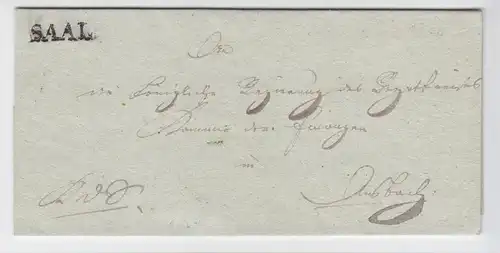 SAAL
An
die Königliche Regierung des Rezatkreises
Kammer der Finanzen
in
Ansbach.